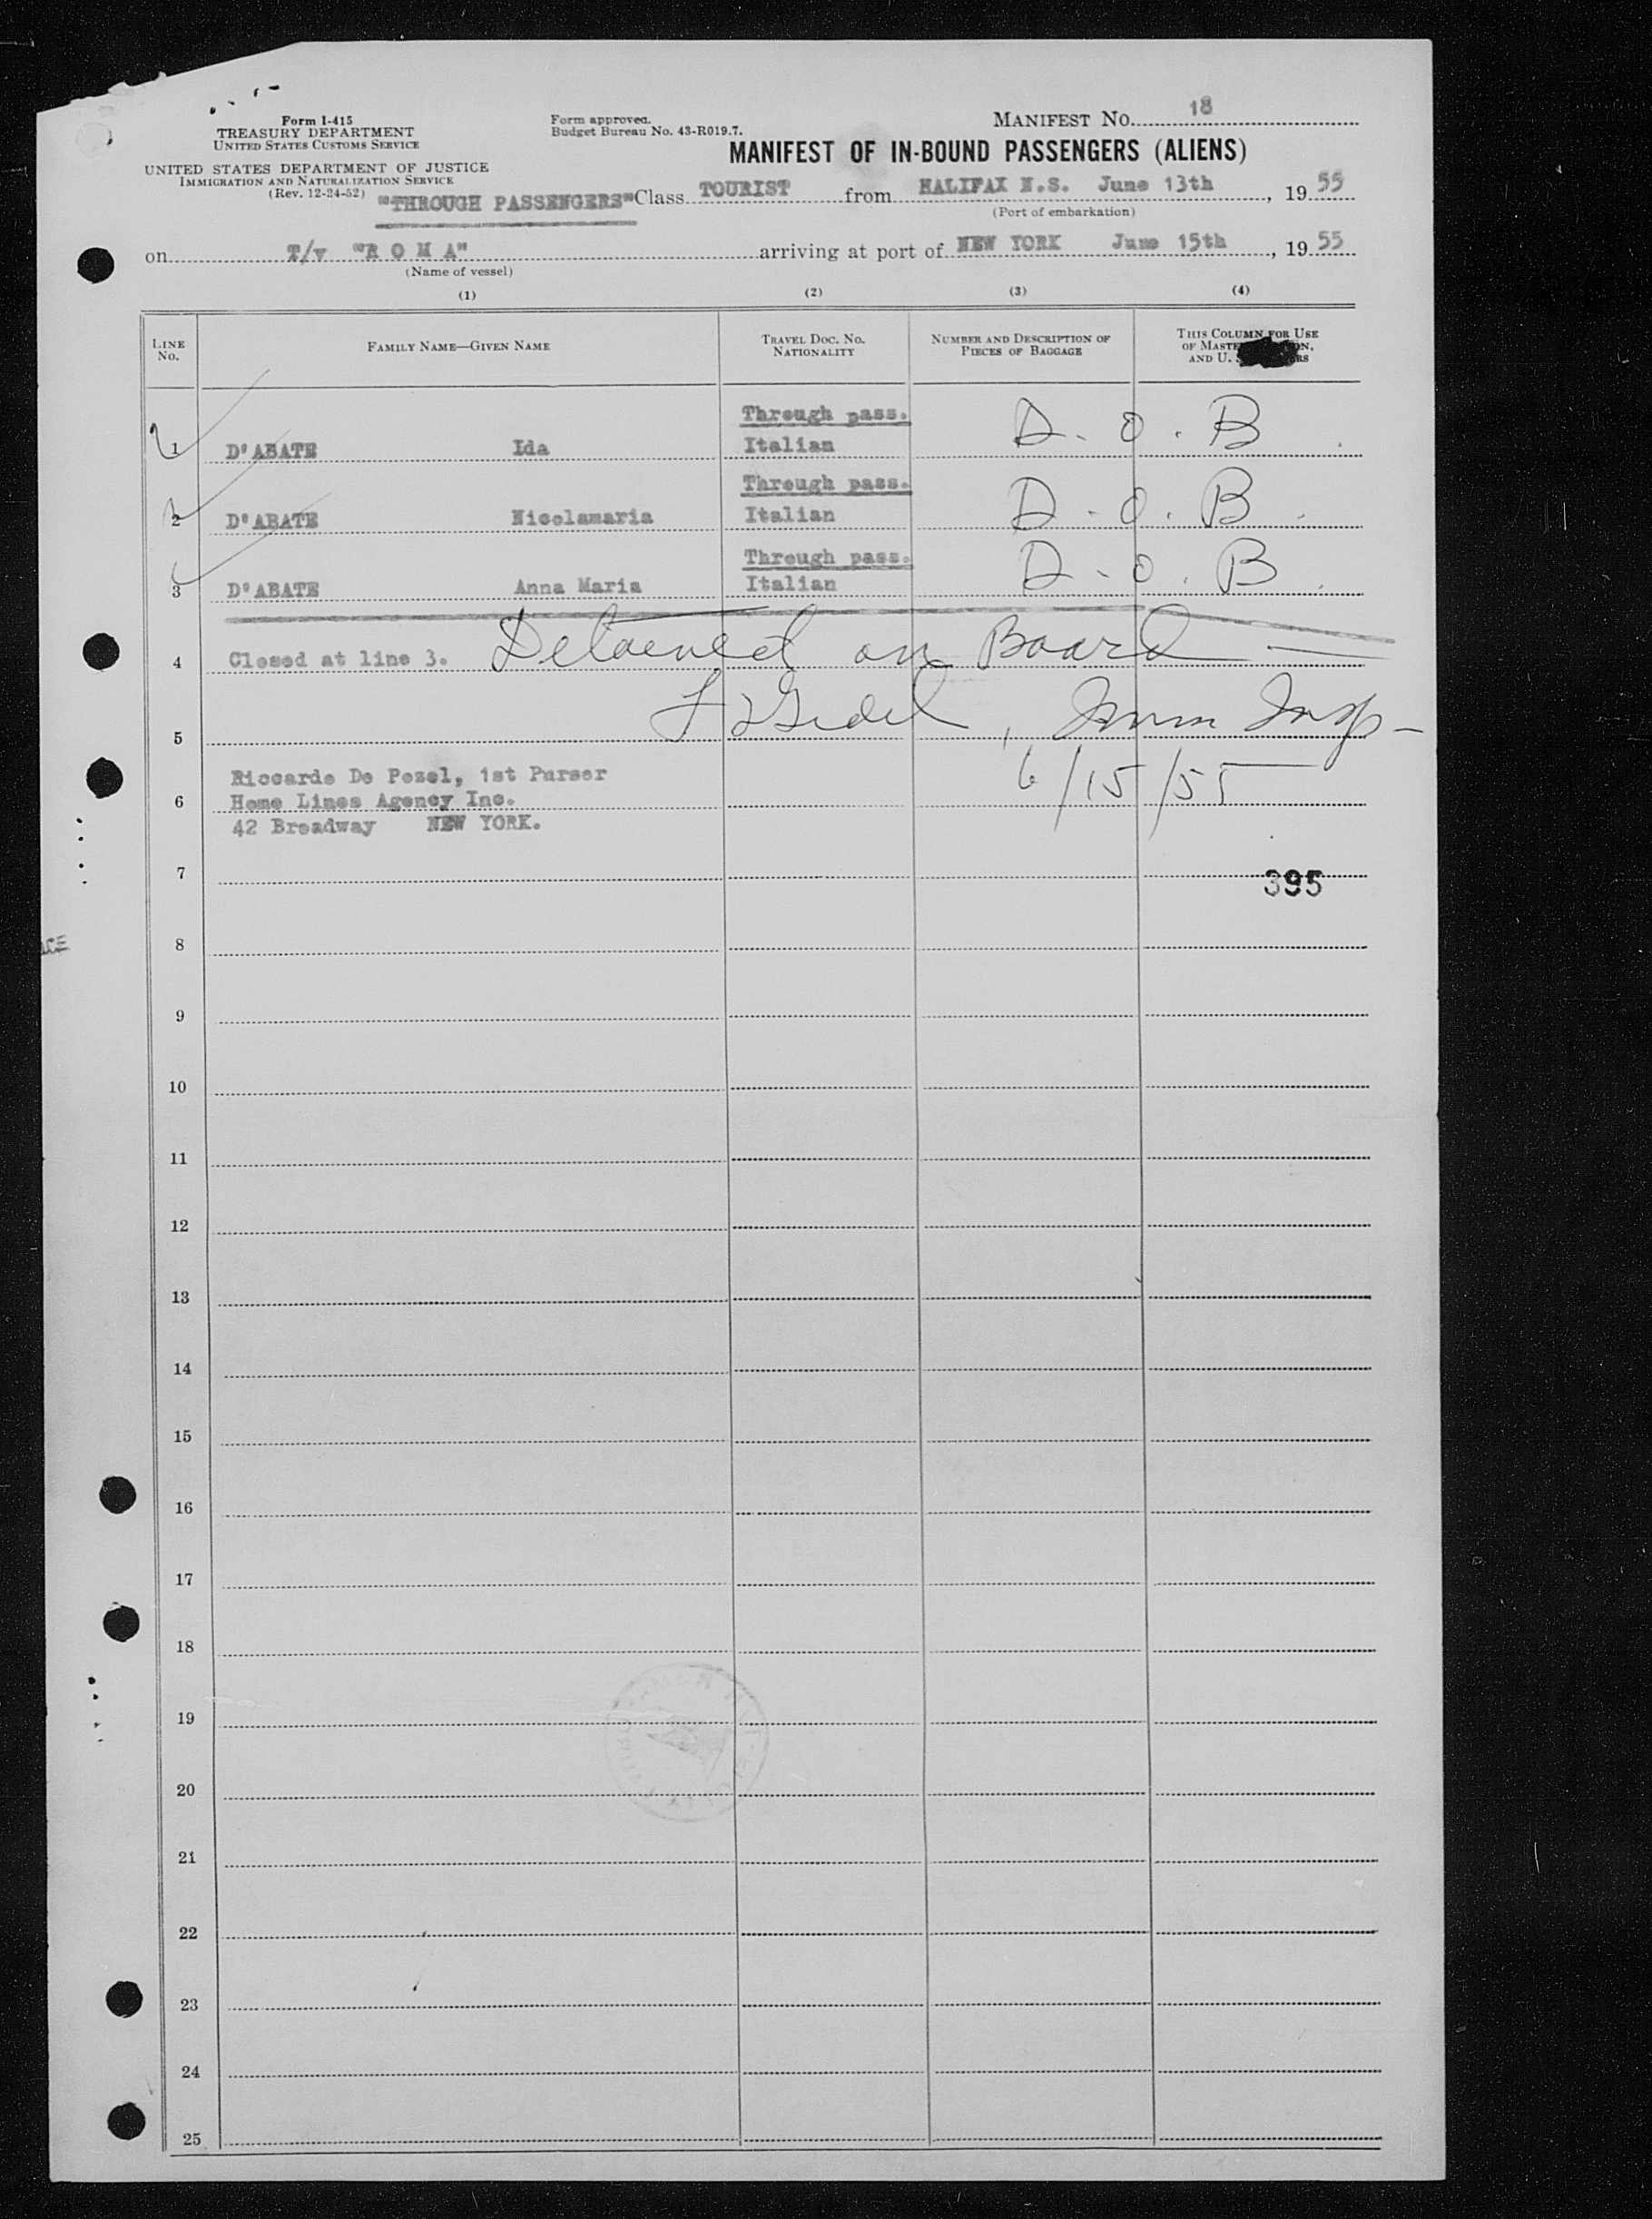 Form I-415
TREASURY DEPARTMENT
UNITED STATES CUSTOMS SERVICE
UNITED STATES DEPARTMENT OF JUSTICE
IMMIGRATION AND NATURALIZATION SERVICE
(Rev. 12-24-52)
Form approved.
Budget Bureau No. 43-R019.7.
MANIFEST NO. 18
MANIFEST OF IN-BOUND PASSENGERS (ALIENS)
"THROUGH PASSENGERS" Class TOURIST from HALIFAX N.S. June 13th, 19 55
(Port of embarkation)
on T/v "R O M A" arriving at port of NEW YORK June 15th, 19 55
(Name of vessel)
(1) (2) (3) (4)
LINE NO. FAMILY NAME—GIVEN NAME TRAVEL DOC. NO. NATIONALITY NUMBER AND DESCRIPTION OF PIECES OF BAGGAGE THIS COLUMN FOR USE OF AND U.
Through pass.
1 D'ABATE Ida Italian D. O. B.
Through pass.
2 D'ABATE Nicolamaria Italian D. O. B.
Through pass.
3 D'ABATE Anna Maria Italian D. O. B.
4 Closed at line 3. Detained on Board
5 Imm Insp
6/15/55
Riccardo De Pezel, 1st Purser
6 Home Lines Agency Inc.
42 Broadway NEW YORK.
7
395
8
9
10
11
12
13
14
15
16
17
18
19
20
21
22
23
24
25